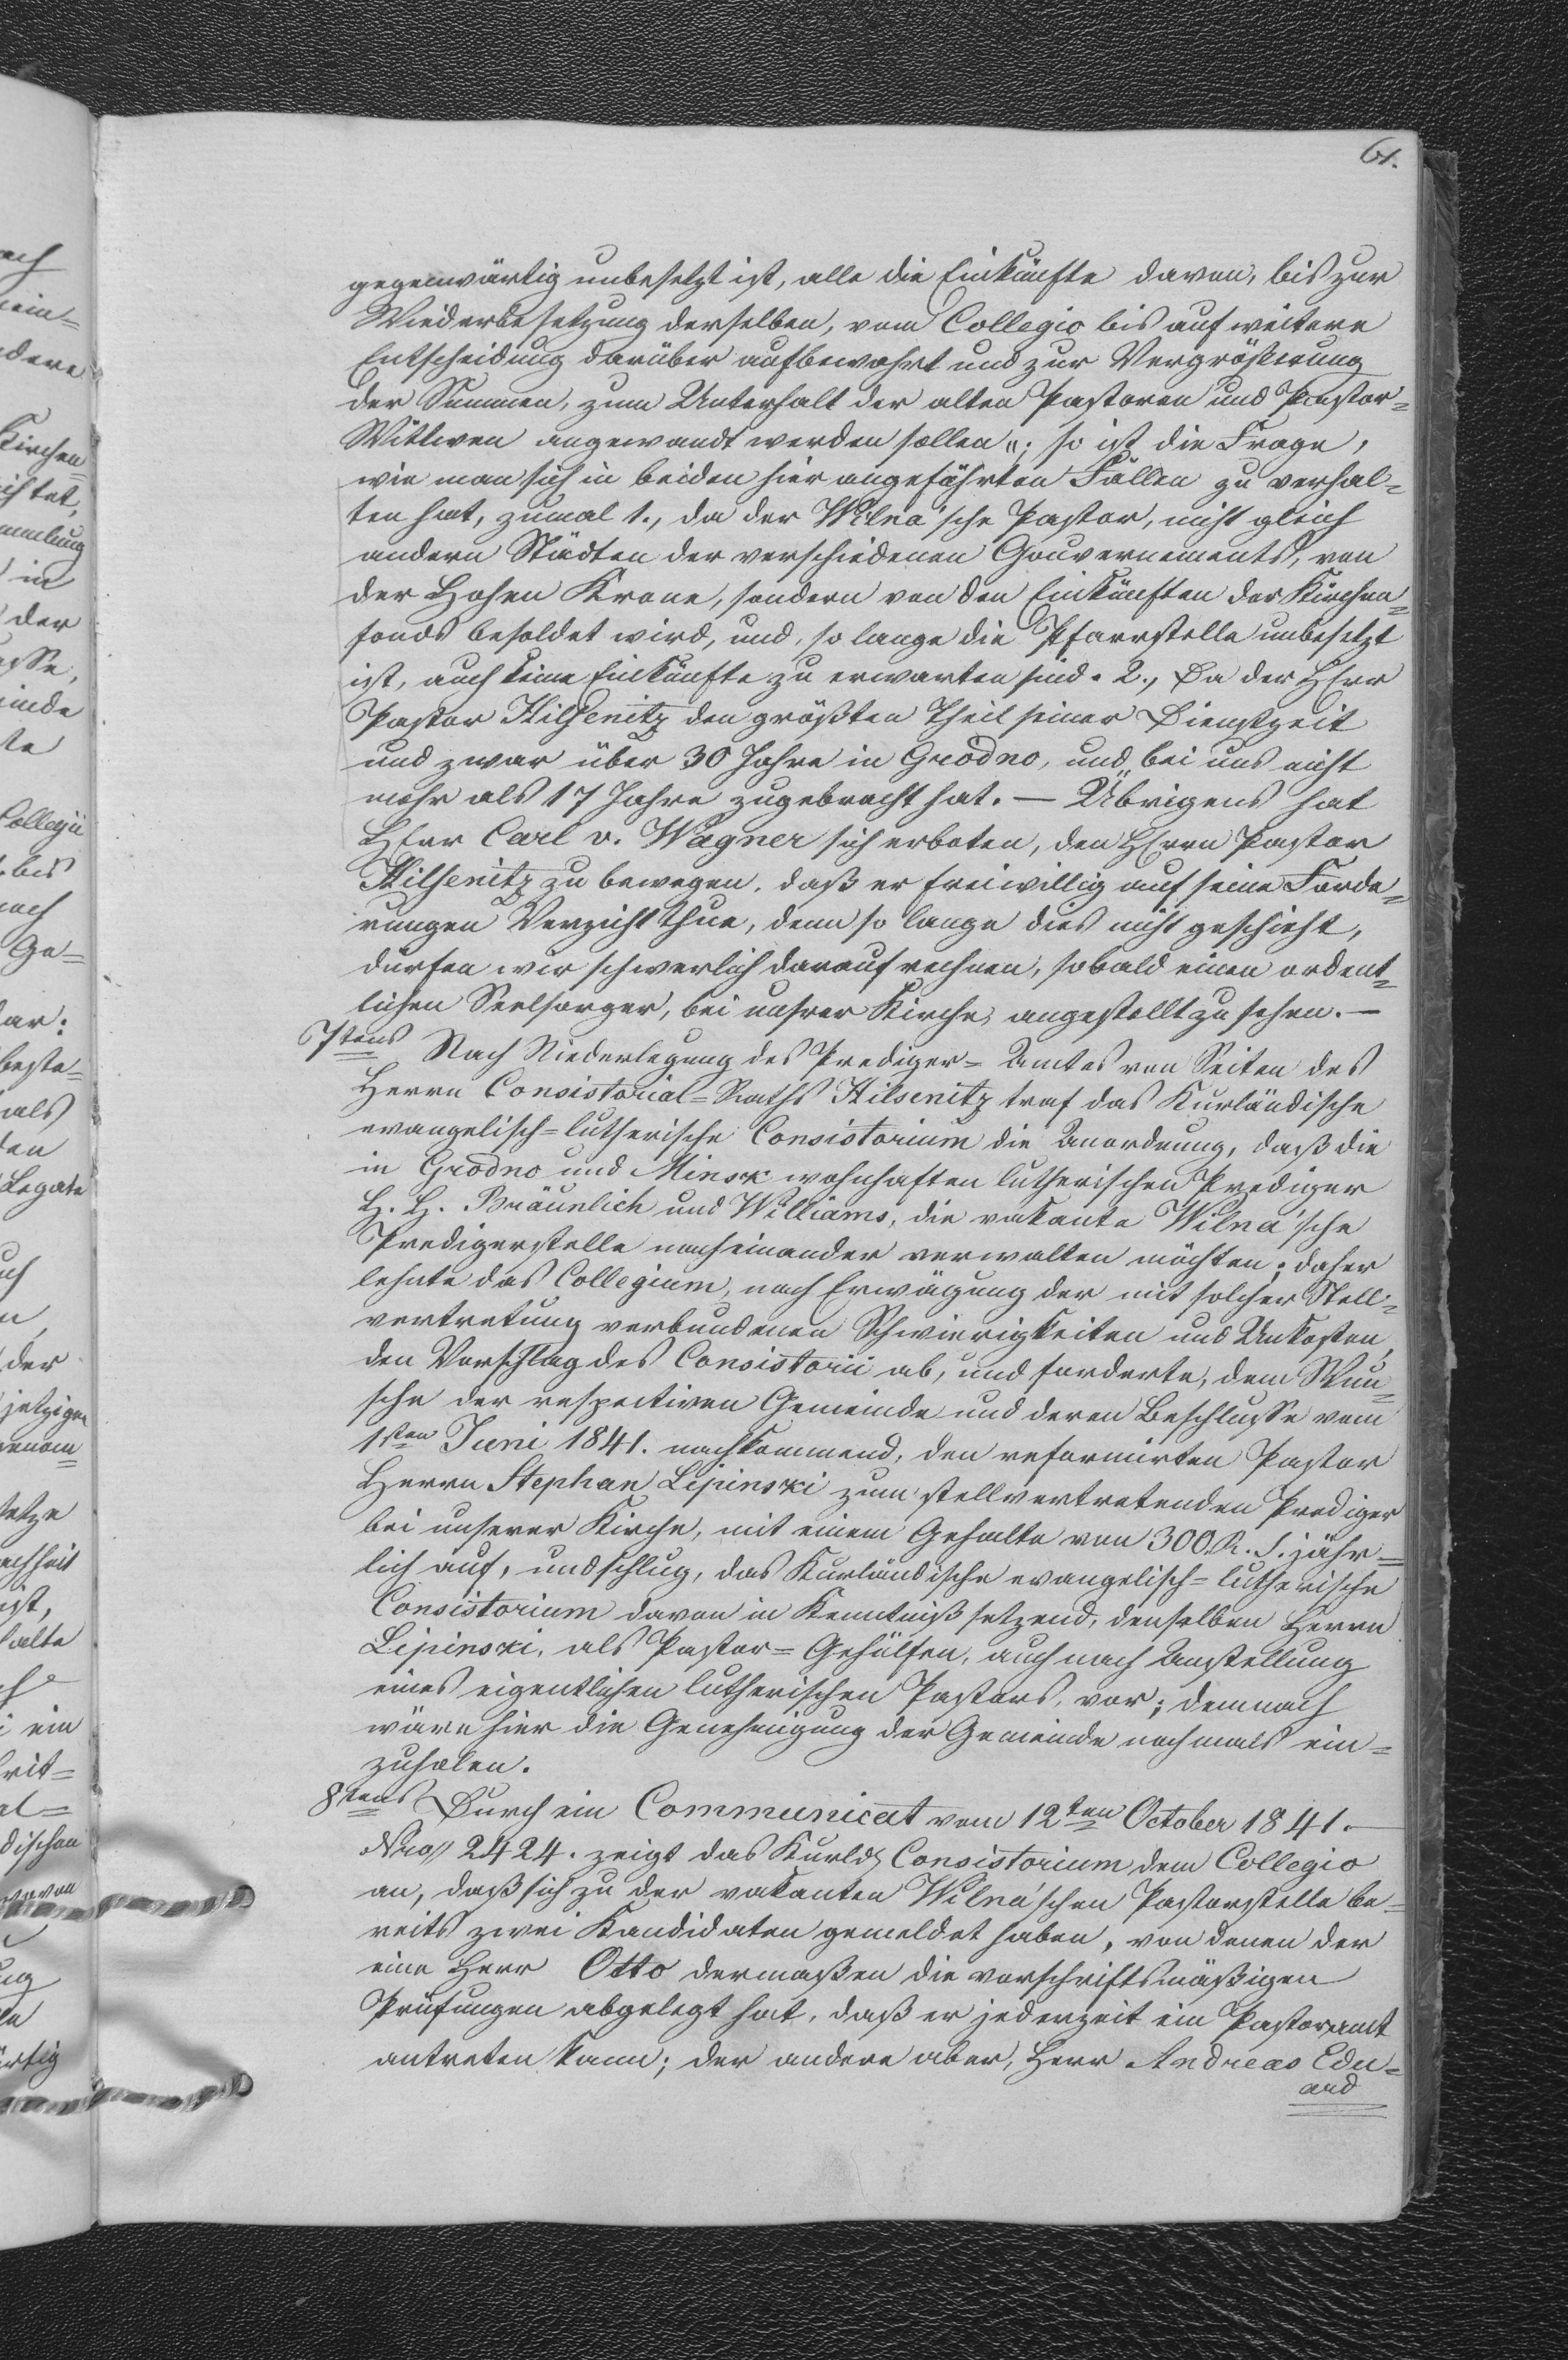 61.
gegenwärtig unbesetzt ist, alle die Einkünfte davon, bis zur
Wiederbesetzung derselben, vom Collegio bis auf weitere
Entscheidung darüber aufbewahrt und zur Vergrößerung
der Summen, zum Unterhalt der alten Pastoren und Pastor-
Wittwen angewandt werden sollen"; so ist die Frage,
wie man sich in beiden hier angeführten Fällen zu verhal-
ten hat, zumal 1., da der Wilna'sche Pastor, nicht gleich
andern Städten der verschiedenen Gouvernements, von
der Hohen Krone, sondern von den Einkünften der Kirchen-
fonds besoldet wird, und, so lange die Pfarrstelle unbesetzt
ist, auch keine Einkünfte zu erwarten sind. 2., Da der Herr
Pastor Hilsenitz den größten Theil seiner Dienstzeit
und zwar über 30 Jahre in Grodno, und bei uns nicht
mehr als 17 Jahre zugebracht hat. — Übrigens hat
Herr Carl v. Wagner sich erboten, den Herrn Pastor
Hilsenitz zu bewegen, daß er freiwillig auf seine Forde-
rungen Verzicht thue, denn so lange dies nicht geschieht,
dürfen wir schwerlich darauf rechnen, sobald einen ordent-
lichen Seelsorger, bei unsrer Kirche, angestellt zu sehen. —
7tens Nach Niederlegung des Prediger-Amtes von Seiten des
Herrn Consistorial-Raths Hilsenitz traf das Kurländische
evangelisch-lutherische Consistorium die Anordnung, daß die
in Grodno und Minsk wohnhaften lutherischen Prediger
H. H. Bräunlich und Williams, die vakante Wilna'sche
Predigerstelle nacheinander verwalten möchten; daher
lehnte das Collegium, nach Erwägung der mit solcher Stell-
vertretung verbundenen Schwierigkeiten und Unkosten,
den Vorschlag des Consistorii ab, und forderte, dem Wun-
sche der respectiven Gemeinde und deren Beschlusse vom
1sten Juni 1841. nachkommend, den reformirten Pastor
Herrn Stephan Lipinski zum stellvertretenden Prediger
bei unserer Kirche, mit einem Gehalte von 300 R. S. jähr-
lich auf, und schlug, das Kurländische evangelisch-lutherische
Consistorium davon in Kenntniß setzend, denselben Herrn
Lipinski, als Pastor-Gehülfen, auch nach Anstellung
eines eigentlichen lutherischen Pastors, vor; demnach
wäre hier die Genehmigung der Gemeinde nochmals ein-
zuholen.
8tens Durch ein Communicat vom 12ten October 1841. —
Nro 2424. zeigt das Kurld. Consistorium, dem Collegio
an, daß sich zu der vakanten Wilna'schen Pastorstelle be-
reits zwei Kandidaten gemeldet haben, von denen der
eine Herr Otto dermaßen die vorschriftsmäßigen
Prüfungen abgelegt hat, daß er jederzeit ein Pastoramt
antreten kann; der andere aber, Herr Andreas Edu-
ard